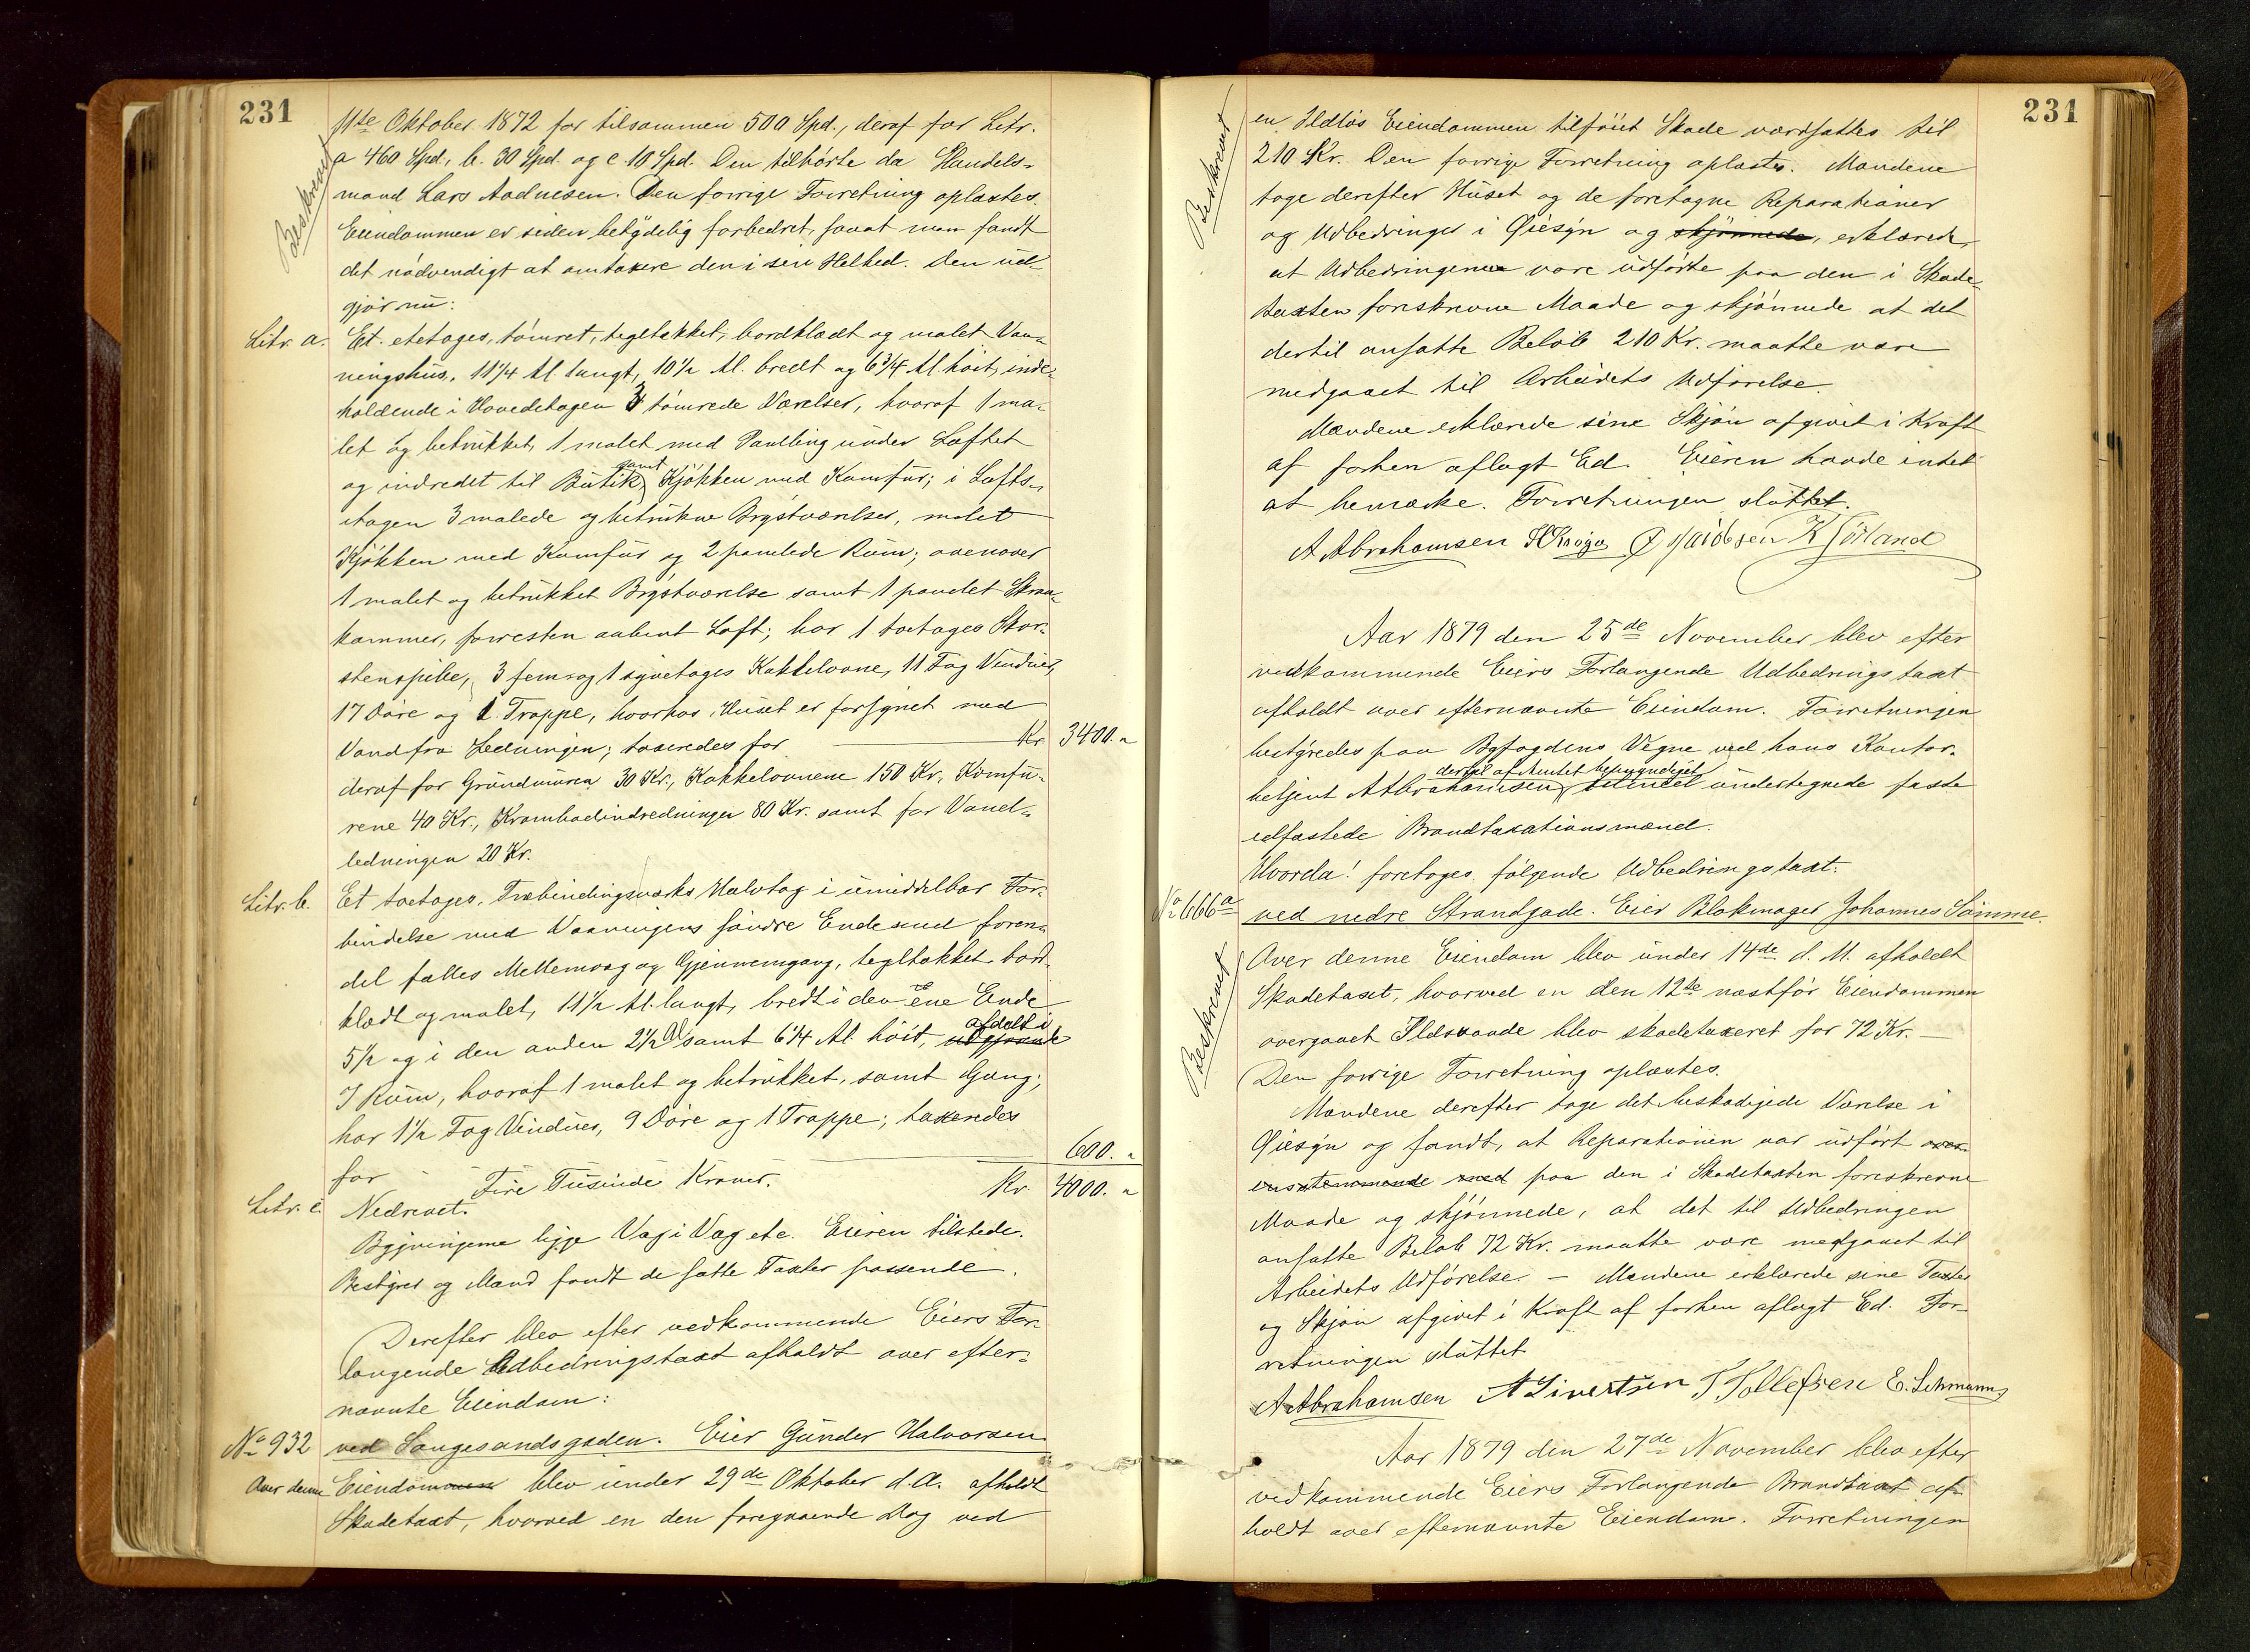 231
Beskrevet
11te Oktober 1872 for tilsammen 500 Spd., deraf for Litr.
a 460 Spd., b. 30 Spd. og c. 10 Spd. Den tilhörte da Handels-
mand Lars Aadnesen. Den forrige Forretning oplæstes.
Eiendommen er siden betydelig forbedret, saaat man fandt
det nödvendigt at omtaxere den i sin Helhed. Den ud-
gjör nu:
Litr. a. Et etetages, tömret, tegltækket, bordklædt og malet Vaa-
ningshus, 11 1/4 Al. langt, 10 1/2 Al. bredt og 6 3/4 Al. höit, inde-
holdende i Hovedetagen 3 tömrede Værelser, hvoraf 1 ma-
let og betrukket, 1 malet med Paneling under Loftet
og indredet til Butik, samt Kjökken med Komfur; i Lofts-
etagen 3 malede og betrukne Brystværelser, malet
Kjökken med Komfur og 2 panelede Rum; ovenover
1 malet og betrukket Brystværelse samt 1 panelet Skraa-
kammer, forresten aabent Loft; har 1 toetages Skor-
stenspibe, 3 fem- og 1 syvetages Kakkelovne, 11 Fag Vinduer,
17 Döre og 1 Trappe, hvorhos Huset er forsynet med
Vand fra Ledningen; taxeredes for Kr. 3400. "
deraf for Grundmuren 30 Kr., Kakkelovnene 150 Kr., Komfu-
rene 40 Kr., Krambodindredningen 80 Kr. samt for Vand-
ledningen 20 Kr.
Litr. b. Et toetages, Træbindingsværks Halvtag i umiddelbar For-
bindelse med Vaaningens söndre Ende med foren-
del fælles Mellemvæg og Gjennemgang, tegltækket, bord-
klædt og malet, 11 1/2 Al. langt, bredt i den ene Ende
5 1/2 og i den anden 2 1/2 Al. samt 6 1/4 Al. höit, udgjörende afdelt i
7 Rum, hvoraf 1 malet og betrukket, samt Gang;
har 1 1/2 Fag Vinduer, 9 Döre og 1 Trappe; taxeredes
for 600. "
Fire Tusinde Kroner. Kr. 4000. "
Litr. c. Nedrevet.
Bygningerne ligge Væg i Væg etc. Eieren tilstede.
Bestyrer og Mænd fandt de satte Taxter passende.
Derefter blev efter vedkommende Eiers For-
langende Udbedringstaxt afholdt over efter-
nævnte Eiendom:
No 932 ved Langesandsgaden. Eier Gunder Halvorsen.
Over denne Eiendommen blev under 29de Oktober d. A. afholdt
Skadetaxt, hvorved en den foregaaende Dag ved
231
Beskrevet
en Ildlös Eiendommen tilföiet Skade værdsattes til
210 Kr. Den forrige Forretning oplæstes. Mændene
toge derefter Huset og de foretagne Reparationer
og Udbedringer i Öiesyn og skjönnede, erklærede,
at Udbedringerne vare udförte paa den i Skade-
taxten foreskrevne Maade og skjönnede at det
dertil ansatte Belöb 210 Kr. maatte være
medgaaet til Arbeidets Udförelse.
Mændene erklærede sine Skjön afgivet i Kraft
af forhen aflagt Ed. Eieren havde intet
at bemærke. Forretningen sluttet.
A Abrahamsen H Krøge Jacobsen K Sörland
Aar 1879 den 25de November blev efter
vedkommende Eiers Forlangende Udbedringstaxt
afholdt over efternævnte Eiendom. Forretningen
bestyredes paa Byfogdens Vegne ved hans Kontor-
betjent A Abrahamsen, dertil af Amtet bemyndiget undertegnede faste
edfæstede Brandtaxationsmænd.
Hvorda! foretoges følgende Udbedringstaxt:
No 666a ved nedre Strandgade. Eier Blokmager Johannes Sömme.
Beskrevet
Over denne Eiendom blev under 14de d. M. afholdt
Skadetaxt, hvorved en den 12te næstför Eiendommen
overgaaet Ildsvaade blev skadetaxeret for 72 Kr. —
Den forrige Forretning oplæstes.
Mændene derefter toge det beskadigede Værelse i
Öiesyn og fandt, at Reparationen var udfört over-
ensstemmende med paa den i Skadetaxten foreskrevne
Maade og skjönnede, at det til Udbedringen
ansatte Belöb 72 Kr. maatte være medgaaet til
Arbeidets Udförelse. — Mændene erklærede sine Taxter
og Skjön afgivet i Kraft af forhen aflagt Ed. For-
retningen sluttet.
A Abrahamsen A Sivertsen T Tollefsen E. Lehmann
Aar 1879 den 27de November blev efter
vedkommende Eiers Forlangende Brandtaxt af-
holdt over efternævnte Eiendom. Forretningen